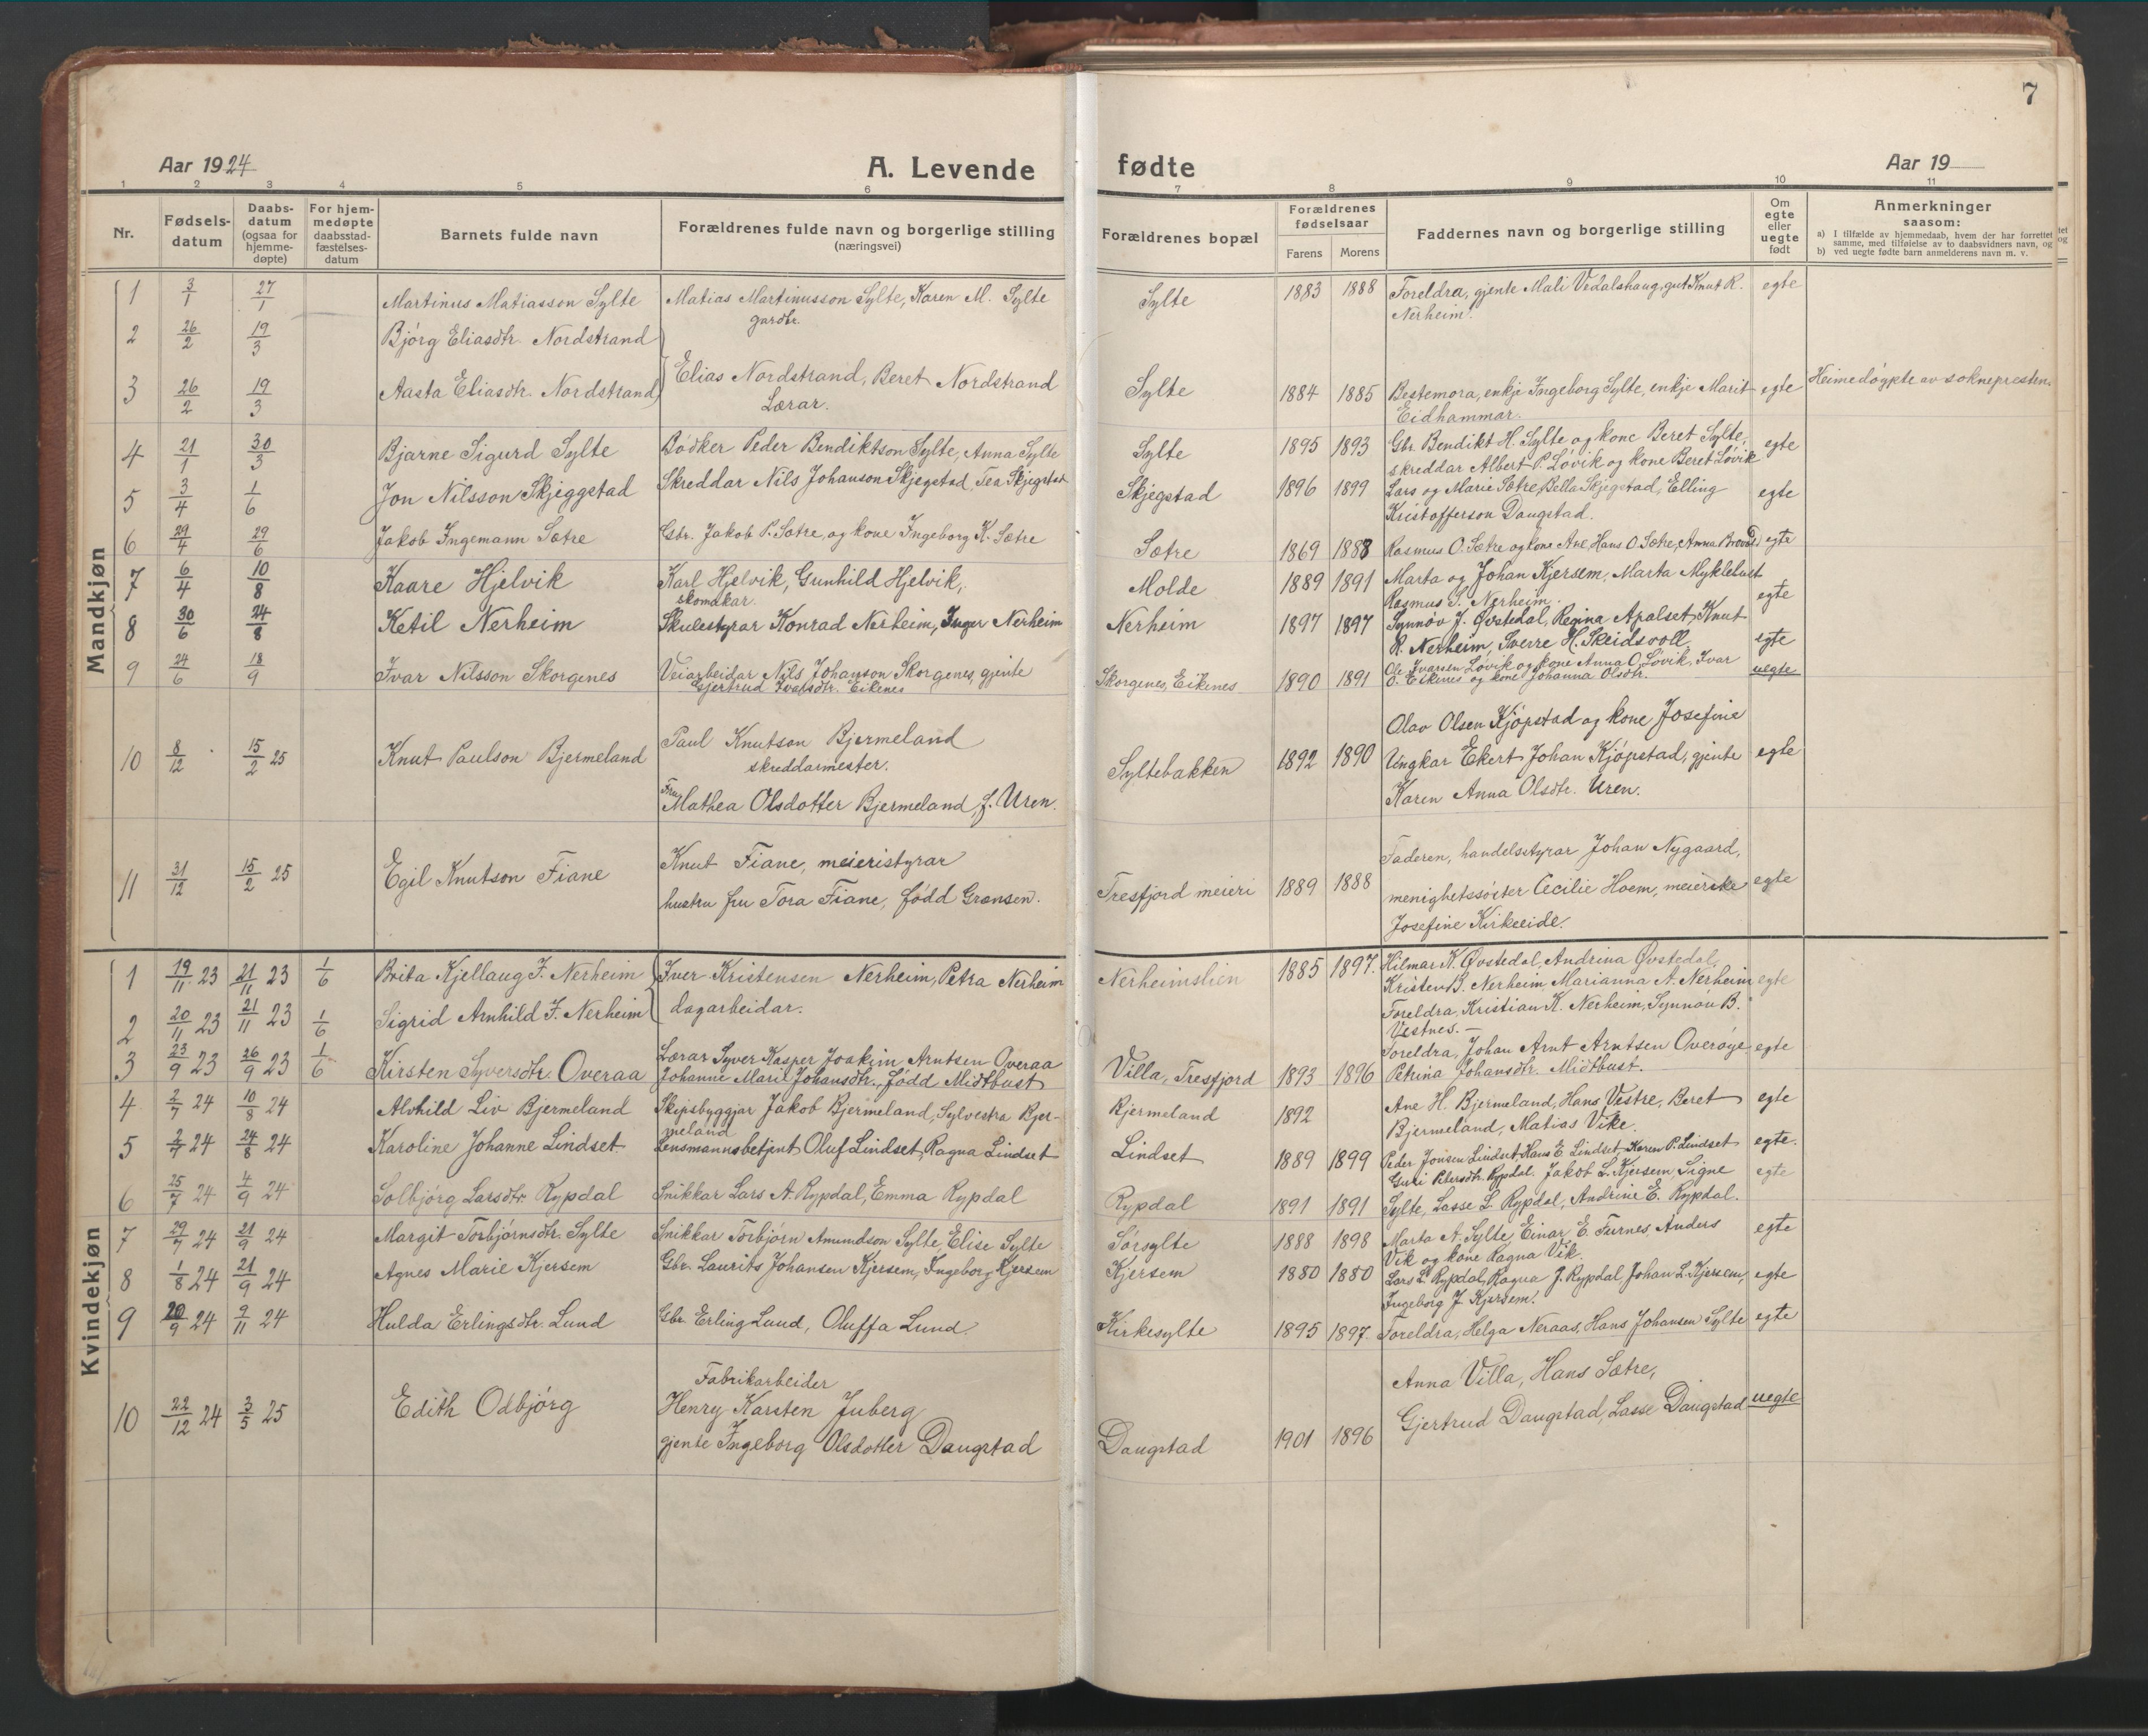 7
Aar 1924
A. Levende
fødte
Aar 19
1 2 3 4 5 6 7 8 9 10 11
Nr.
Fødsels-
datum
Daabs-
datum
(ogsaa for
hjemme-
døpte)
For hjem-
medøpte
daabsstad-
fæstelses-
datum
Barnets fulde navn
Forældrenes fulde navn og borgerlige stilling
(næringsvei)
Forældrenes bopæl
Forældrenes
fødselsaar
Farens Morens
Faddernes navn og borgerlige stilling
Om
egte
eller
uegte
født
Anmerkninger
saasom:
a) I tilfælde av hjemmedaab, hvem der har forrettet
samme, med tilføielse av to daabsvidners navn, og
b) ved uegte fødte barn anmelderens navn m. v.
Mandkjøn
1 3/1 27/1 Martinus Matiasson Sylte Matias Martinusson Sylte, Karen M. Sylte Sylte 1883 1888 Foreldra, gjente Mali Vedalshaug, gut Knut R. egte
gardbr. Nerheim.
2 26/2 19/3 Bjørg Eliasdtr. Nordstrand
3 26/2 19/3 Aasta Eliasdtr. Nordstrand Elias Nordstrand, Beret Nordstrand Sylte 1884 1885 Bestemora, enkje Ingeborg Sylte, enkje Marit egte Heimedøypte av soknepresten.
Lærar. Eidhammar.
4 21/1 30/3 Bjarne Sigurd Sylte Bødker Peder Bendiktson Sylte, Anna Sylte Sylte 1895 1893 Gbr. Bendikt H. Sylte og kone Beret Sylte, egte
skreddar Albert P. Løvik og kone Beret Løvik
5 3/4 1/6 Jon Nilsson Skjeggstad Skreddar Nils Johanson Skjegstad, Tea Skjegstad Skjegstad 1896 1899 Lars og Marie Sætre, Bella Skjegstad, Elling egte
Kristofferson Daugstad.
6 29/4 29/6 Jakob Ingemann Sætre Gbr. Jakob P. Sætre, og kone Ingeborg K. Sætre Sætre 1869 1888 Rasmus O. Sætre og kone Ane, Hans O. Sætre, Anna egte
7 6/4 10/8 Kaare Hjelvik Karl Hjelvik, Gunhild Hjelvik, Molde 1889 1891 Marta og Johan Kjersem, Marta Myklebust
skomakar. Rasmus S. Nerheim. egte
8 30/6 24/8 Ketil Nerheim Skulestyrar Konrad Nerheim, Inger Nerheim Nerheim 1897 1897 Synnøv J. Øvstedal, Regina Apalset, Knut
R. Nerheim, Sverre H. Skeidsvoll egte
9 24/6 18/9 Ivar Nilsson Skorgenes Veiarbeidar Nils Johanson Skorgenes, gjente Skorgenes, Eikenes 1890 1891 Ole Ivarsen Løvik og kone Anna O. Løvik, Ivar uegte
Gjertrud Ivarsdtr. Eikenes O. Eikenes og kone Johanna Olsdtr.
10 8/12 15/2 25 Knut Paulson Bjermeland Paul Knutson Bjermeland Syltebakken 1892 1890 Olav Olsen Kjøpstad og kone Josefine
skreddarmester. Ungkar Ekert Johan Kjøpstad, gjente egte
Fru Mathea Olsdotter Bjermeland, f. Uren. Karen Anna Olsdtr. Uren.
11 31/12 15/2 25 Egil Knutson Fiane Knut Fiane, meieristyrar Tresfjord meieri 1889 1888 Faderen, handelsstyrar Johan Nygaard,
hustru fru Tora Fiane, født Grønsen. menighetssøster Cecilie Hoem, meierske egte
Josefine Kirkeeide.
Kvindekjøn
1 19/11 23 21/11 23 1/6 Brita Kjellaug I. Nerheim Iver Kristensen Nerheim, Petra Nerheim Nerheimslien 1885 1897. Hilmar K. Øvstedal, Andrina Øvstedal,
Kristen B. Nerheim, Marianna A. Nerheim egte
2 20/11 23 21/11 23 1/6 Sigrid Arnhild I. Nerheim dagarbeidar. Foreldra, Kristian K. Nerheim, Synnøv B.
Vestnes.
3 23/9 23 26/9 23 1/6 Kirsten Syversdtr. Overaa Lærar Syver Kasper Joakim Arntsen Overaa Villa, Tresfjord 1893 1896 Foreldra, Johan Arnt Arntsen Overøye egte
Johanne Marie Johansdtr., født Midtbust Petrina Johansdtr. Midtbust.
4 2/7 24 10/8 24 Alvhild Liv Bjermeland Skipsbyggjar Jakob Bjermeland, Sylvestra Bjer- Bjermeland 1892 Ane H. Bjermeland, Hans Vestre, Beret egte
meland Bjermeland, Matias Vike.
5 2/7 24 24/8 24 Karoline Johanne Lindset Lensmannsbetjent Oluf Lindset, Ragna Lindset Lindset 1889 1899 Peder Jonsen Lindset, Hans E. Lindset, Karen P. Lindset egte.
Guri Petersdtr. Rypdal.
6 25/7 24 4/9 24 Solbjørg Larsdtr. Rypdal Snikkar Lars A. Rypdal, Emma Rypdal Rypdal 1891 1891 Jakob L. Kjersem, Signe egte
Sylte, Lasse L. Rypdal, Andrine E. Rypdal.
7 29/7 24 21/9 24 Margit Torbjørnsdtr. Sylte Snikkar Torbjørn Amundson Sylte, Elise Sylte Sørsylte 1888 1898 Marta A. Sylte, Einar E. Furnes, Anders egte
Vik og kone Ragna Vik.
8 1/8 24 21/9 24 Agnes Marie Kjersem Gbr. Laurits Johansen Kjersem, Ingeborg Kjersem Kjersem 1880 1880 Lars L. Rypdal, Ragna J. Rypdal, Johan L. Kjersem, egte
Ingeborg J. Kjersem.
9 20/9 24 9/11 24 Hulda Erlingsdtr. Lund Gbr. Erling Lund, Oluffa Lund. Kirkesylte 1895 1897. Foreldra, Helga Neraas, Hans Johansen Sylte egte
10 22/12 24 3/5 25 Edith Odbjørg Fabrikarbeider Anna Villa, Hans Sætre,
Henry Karsten Juberg Gjertrud Daugstad, Lasse Daugstad uegte
gjente Ingeborg Olsdotter Daugstad Daugstad 1901 1896